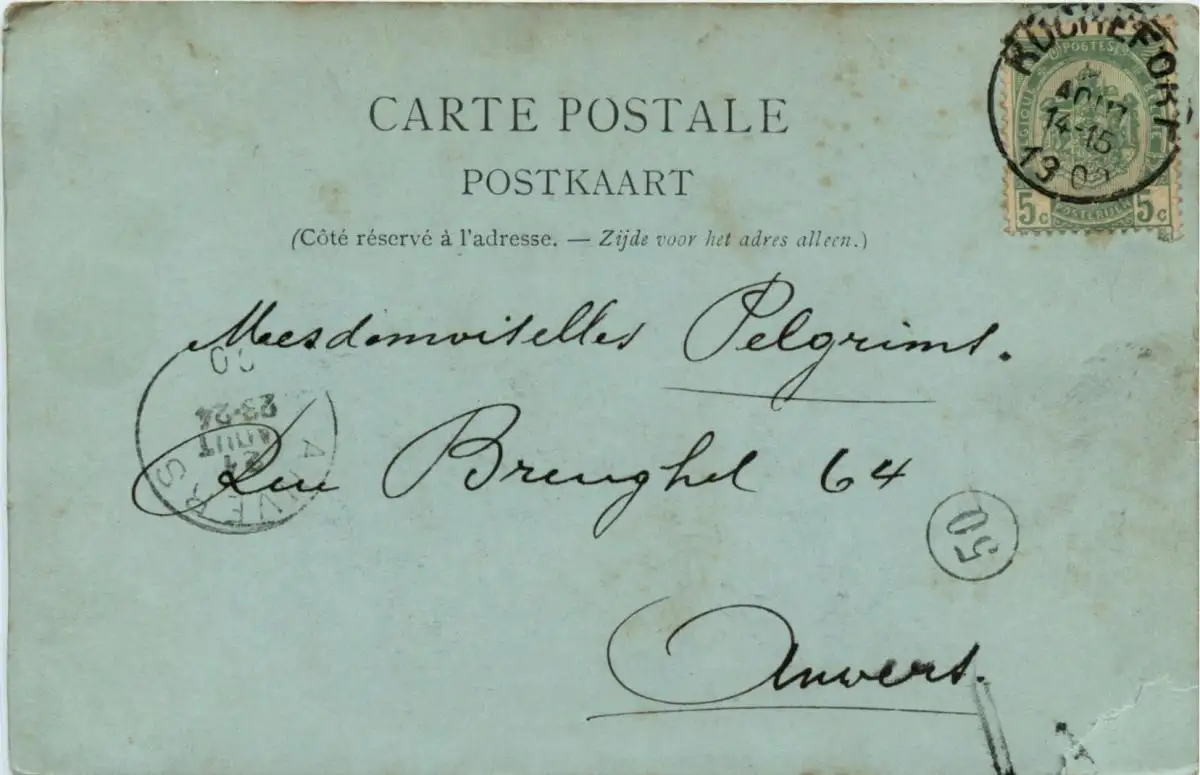 CARTE POSTALE
POSTKAART
(Côté réservé à l'adresse. — Zijde voor het adres alleen.)
ROCHEFORT
AOUT
14-15
POSTES
BELGIQUE
5c POSTERIJEN 5c
Meesdemoiselles Pelgrims.
Rue Breughel 64
Anvers.
ANVERS
21
AOUT
23-24
00
50